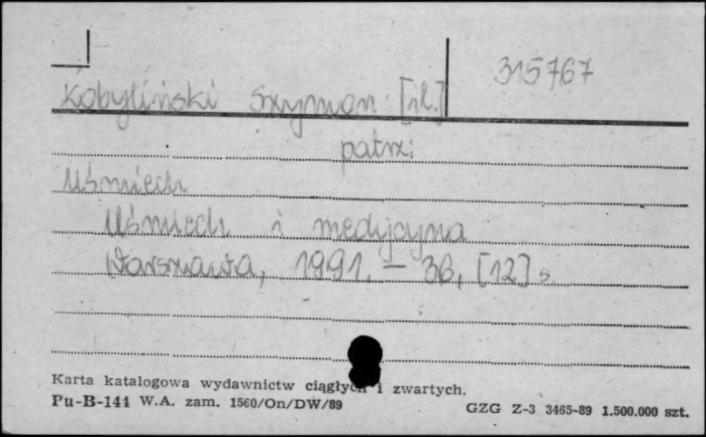 315767
Kobyliński Szymon [il.]
patrz:
Uśmiech
Uśmiech i medycyna
Warszawa, 1991. — 36, [12] s.
Karta katalogowa wydawnictw ciągłych i zwartych.
Pu-B-144 W.A. zam. 1560/On/DW/89 GZG Z-3 3465-89 1.500.000 szt.